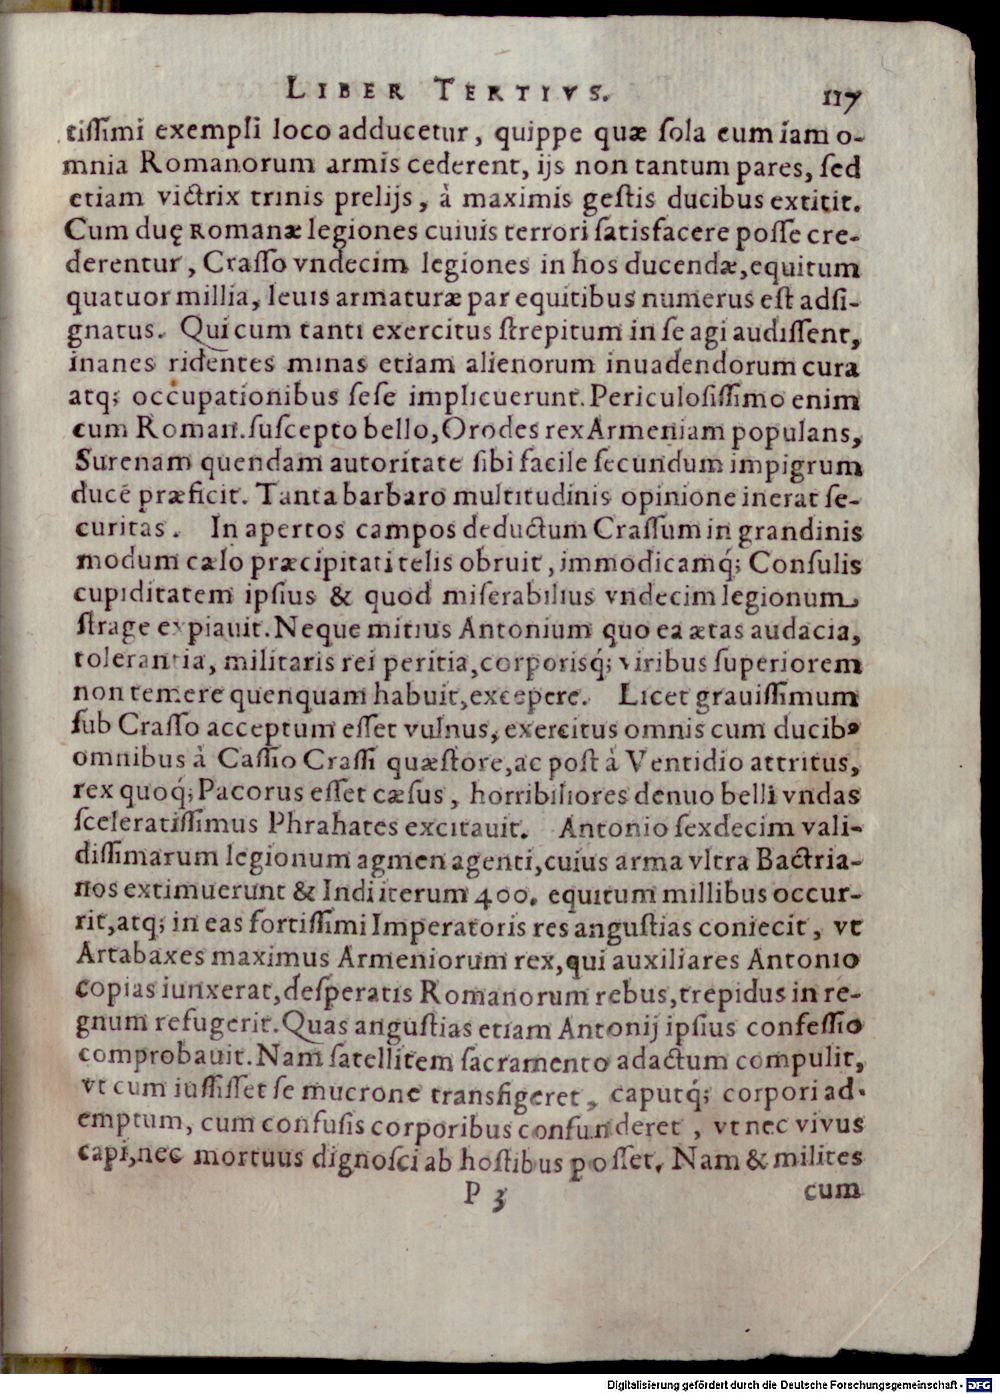 LIBER TERTIVS. 117
tissimi exempli loco adducetur, quippe quæ sola cum iam o-
mnia Romanorum armis cederent, ijs non tantum pares, sed
etiam victrix trinis prelijs, à maximis gestis ducibus extitit.
Cum duę Romanæ legiones cuiuis terrori satisfacere posse cre-
derentur, Crasso vndecim legiones in hos ducendæ, equitum
quatuor millia, leuis armaturæ par equitibus numerus est adsi-
gnatus. Qui cum tanti exercitus strepitum in se agi audissent,
inanes ridentes minas etiam alienorum inuadendorum cura
atq; occupationibus sese implicuerunt. Periculosissimo enim
cum Roman. suscepto bello, Orodes rex Armeniam populans,
Surenam quendam autoritate sibi facile secundum impigrum
ducē præficit. Tanta barbaro multitudinis opinione inerat se-
curitas. In apertos campos deductum Crassum in grandinis
modum cælo præcipitati telis obruit, immodicamq́; Consulis
cupiditatem ipsius & quod miserabilius vndecim legionum
strage expiauit. Neque mitius Antonium quo ea ætas audacia,
tolerantia, militaris rei peritia, corporisq́; viribus superiorem
non temere quenquam habuit, excepere. Licet grauissimum
sub Crasso acceptum esset vulnus, exercitus omnis cum ducibꝰ
omnibus à Cassio Crassi quæstore, ac post à Ventidio attritus,
rex quoq́; Pacorus esset cæsus, horribiliores denuo belli vndas
sceleratissimus Phrahates excitauit. Antonio sexdecim vali-
dissimarum legionum agmen agenti, cuius arma vltra Bactria-
nos extimuerunt & Indi iterum 400. equitum millibus occur-
rit, atq; in eas fortissimi Imperatoris res angustias coniecit, vt
Artabaxes maximus Armeniorum rex, qui auxiliares Antonio
copias iunxerat, desperatis Romanorum rebus, trepidus in re-
gnum refugerit. Quas angustias etiam Antonij ipsius confessio
comprobauit. Nam satellitem sacramento adactum compulit,
vt cum iussisset se mucrone transfigeret, caputq́; corpori ad-
emptum, cum confusis corporibus confunderet, vt nec vivus
capi, nec mortuus dignosci ab hostibus posset. Nam & milites
P 3 cum
Digitalisierung gefördert durch die Deutsche Forschungsgemeinschaft - DFG